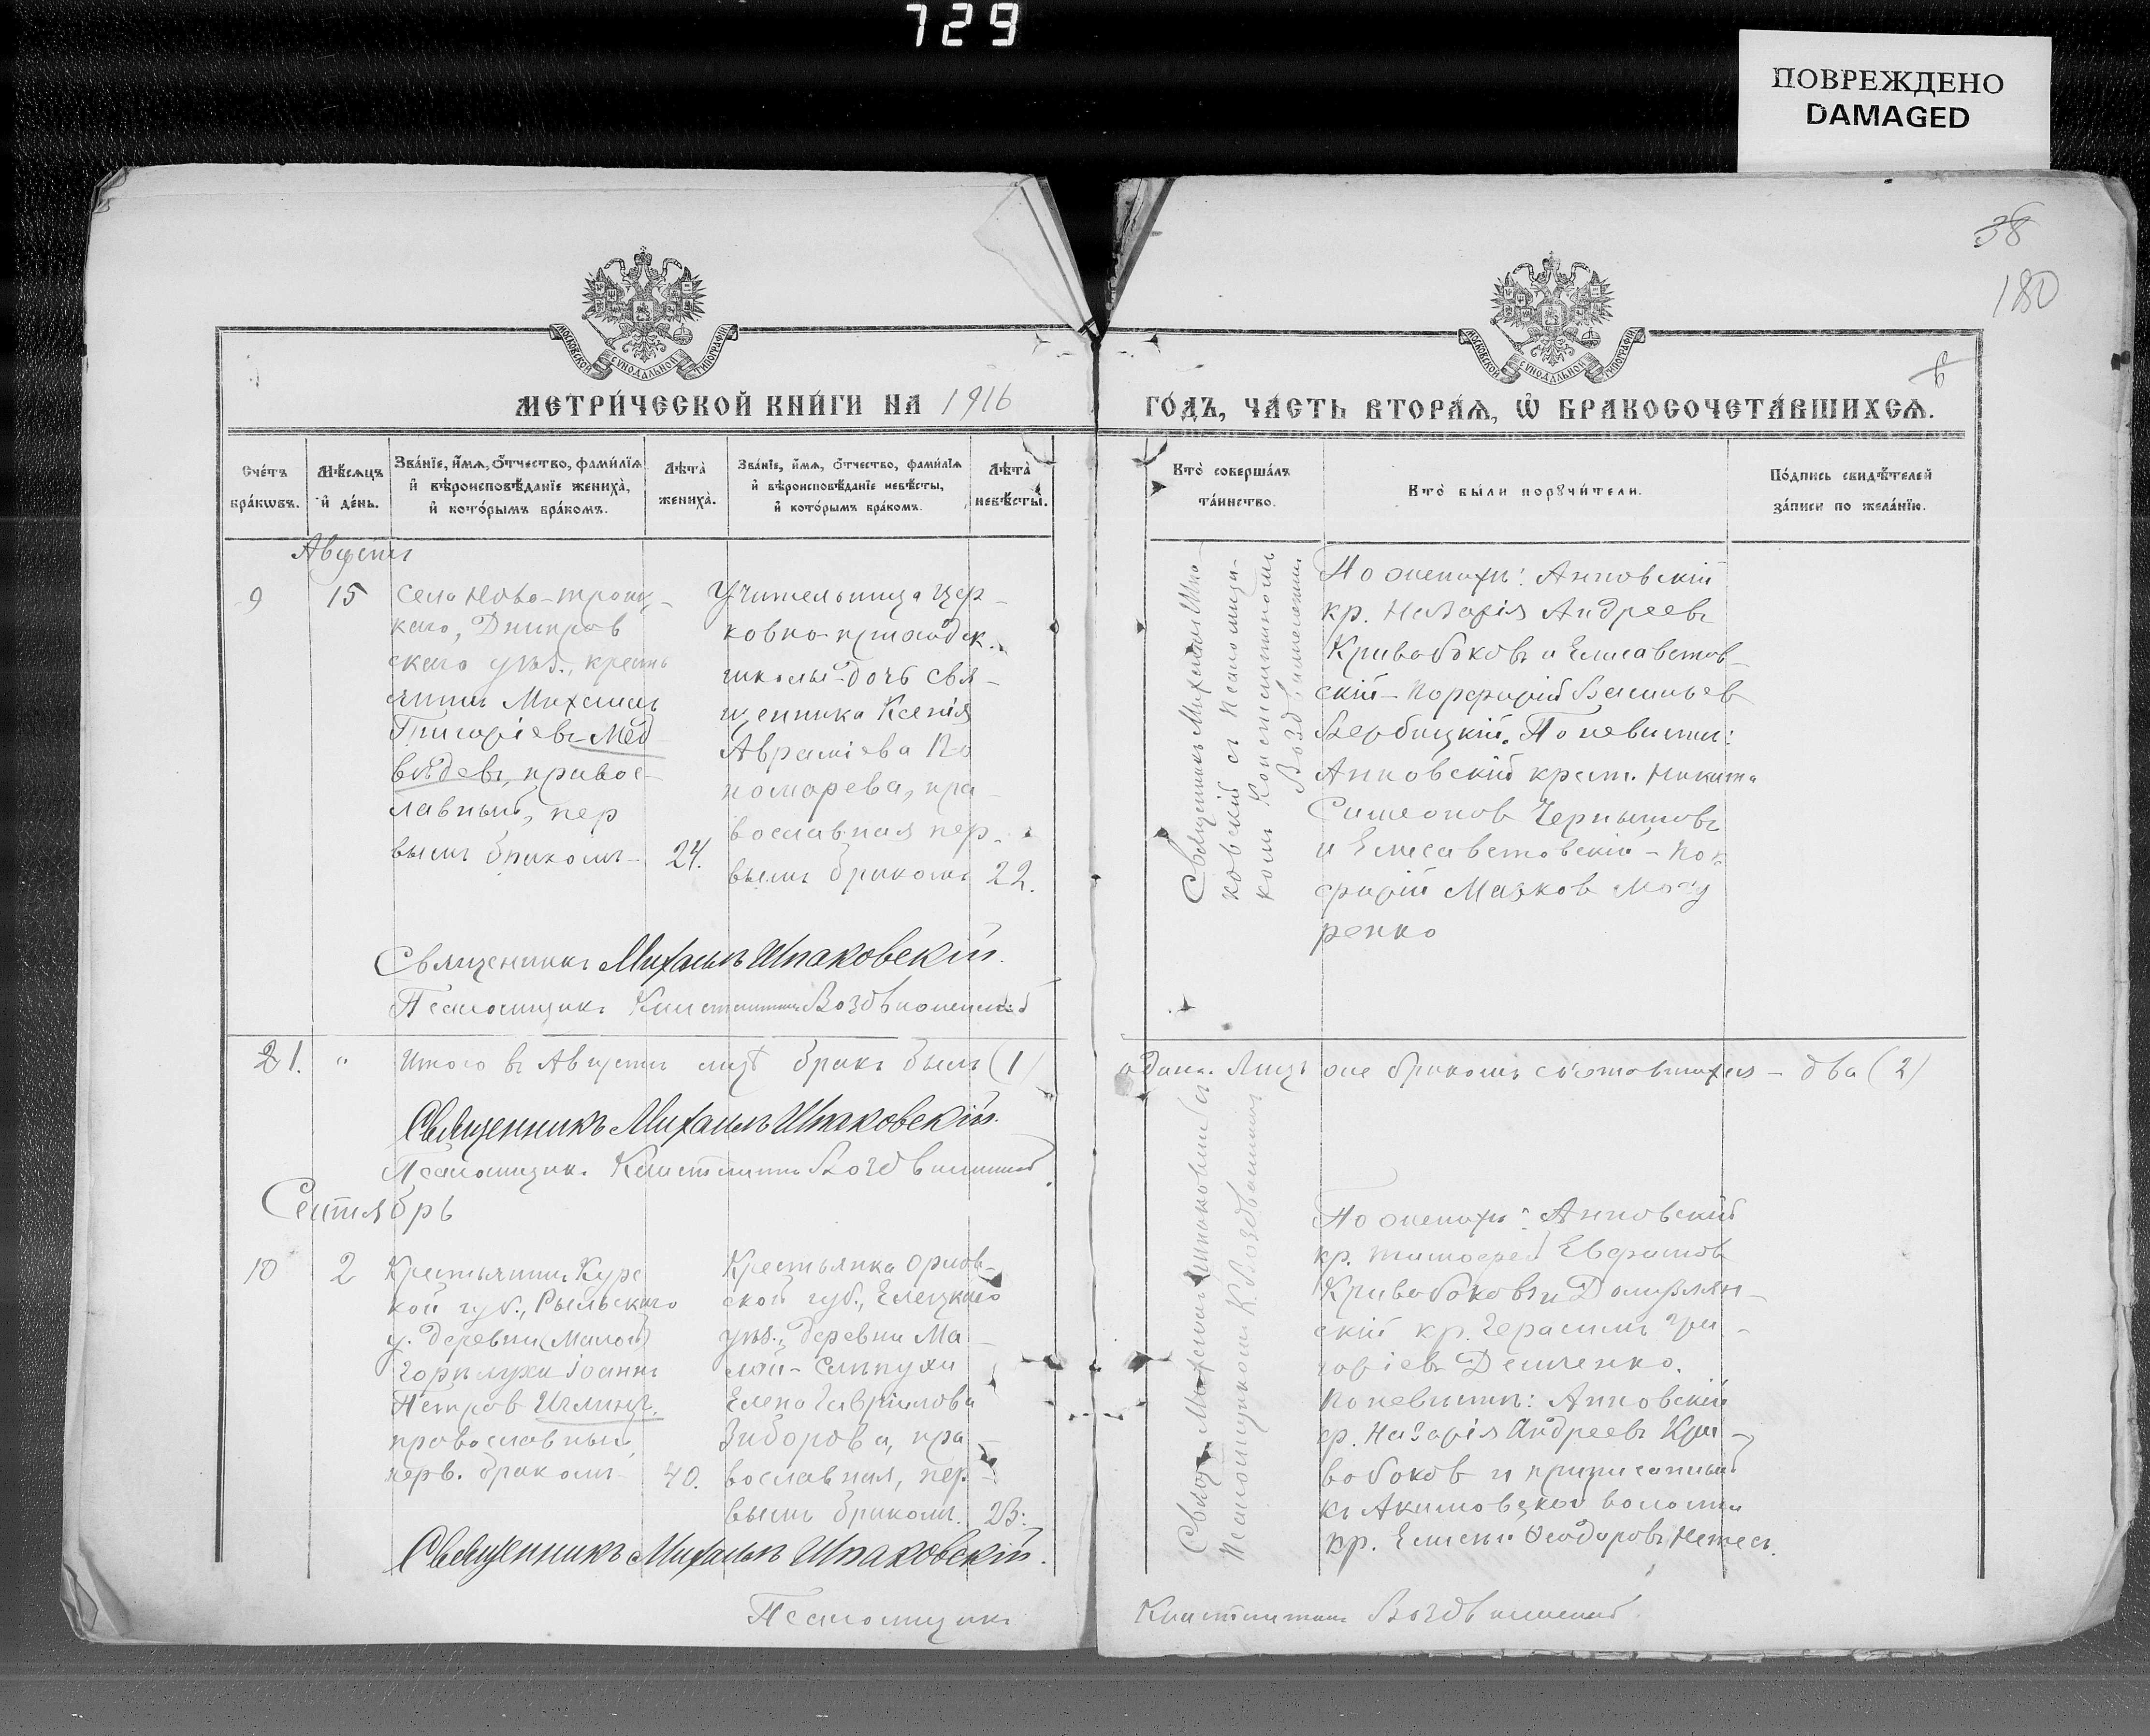 729
ПОВРЕЖДЕНО
DAMAGED
38
180
МОСКОВСКОЙ СѴНОДАЛЬНОЙ ТИПОГРАФІИ
МОСКОВСКОЙ СѴНОДАЛЬНОЙ ТИПОГРАФІИ
МЕТРИ́ЧЕСКОЙ КНИ́ГИ НА 1916
ГО́ДЪ, ЧА́СТЬ ВТОРА́Ѧ, Ѽ БРАКОСОЧЕТА́ВШИХСѦ.
Сче́тъ
бра́кѡвъ.
Мѣ́сѧцъ
и҆ де́нь.
Зва́нїе, и҆́мѧ, ѻ҆́тчество, фами́лїѧ
и҆ вѣроисповѣ́данїе жениха̀,
и҆ кото́рымъ бра́комъ.
Лѣта̀
жениха̀.
Зва́нїе, и҆́мѧ, ѻ҆́тчество, фами́лїѧ
и҆ вѣроисповѣ́данїе невѣ́сты,
и҆ кото́рымъ бра́комъ.
Лѣта̀
невѣ́сты.
Кто̀ соверша́лъ
та́инство.
Кто̀ бы́ли порꙋчи́тели.
По́дпись свидѣ́телей
за́писи по жела́нїю.
Августъ
9
15
Села Ново-троиц-
каго, Днипров
скаго уѣзд., кресть
янинъ Михаилъ
Григоріевъ Мед
вѣдевъ, правос-
лавный, пер
вымъ бракомъ
24.
Учительница цер-
ковно-приходск.
школы-дочь свя-
щенника Ксенія
Авраміева По
номарева, пра-
вославная пер-
вымъ бракомъ
22.
Священникъ Михаилъ Шпа-
ковскій съ псаломщи-
комъ Константиномъ
По женихѣ: Анновскій
кр. Назарія Андреевъ
Кривобоковъ и Елисаветов-
скій - Порфирій Васильев
Вербицкій. По невѣстѣ:
Анновскій крест. Никита
Симеонов Чернышовъ
и Елисаветовскій - Пор
фирій Мазу
ренко
Священникъ Михаилъ Шпаковскій.
Псаломщикъ Константинъ Воздвиженскій
1.
"
Итого въ Августѣ мцѣ бракъ былъ (1)
одинъ. Лицъ оне бракомъ сочетавшихся - два (2)
Священникъ Михаилъ Шпаковскій.
Псаломщикъ Константинъ Воздвиженскій
Сентябрь
10
2
Крестьянинъ Курс
кой губ., Рыльскаго
у. деревни (Малой)
Іоаннъ
Петров
православный,
перв. бракомъ
40.
Крестьянка Орлов-
ской губ., Елецкаго
уѣз., деревни Ма-
лой-
Елена Гавріилова
Зиборова, пра-
вославная, пер-
вымъ бракомъ.
23.
Свящ. Михаилъ Шпаковскій съ
Псаломщикомъ К. Воздвиженскимъ
По женихѣ: Анновскій
кр. Тимофей
Кривобоковъ и
скій кр. Герасимъ Гри-
горіевъ Демченко.
По невѣстѣ: Анновскій
кр. Назарія Андреевъ Кри-
вобоков и приписанный
къ Акимовской волости
кр. Ѳеодоровъ
Священникъ Михаилъ Шпаковскій.
Псаломщикъ
Константинъ Воздвиженскій.